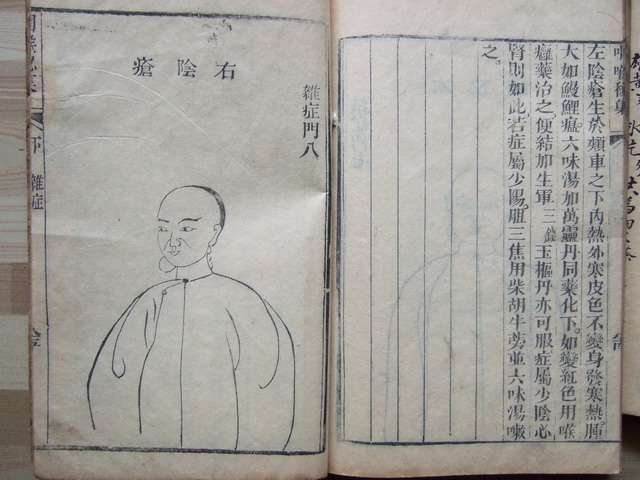 左陰瘡生於頰車之下內熱外寒皮色不變身發寒熱腫
大如鰻鯉瘟六味湯加萬靈丹同藥化下如變紅色用喉
癰藥治之便結加生軍三錢玉樞丹亦可服症屬少陰心
腎則如此若症屬少陽胆三焦用柴胡牛蒡並六味湯嗽
之
雜症門八
右陰瘡
下
雜症